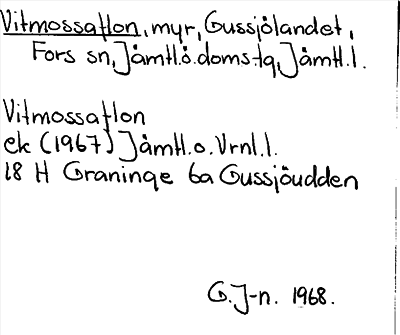 Vitmossaflon, myr, Gussjölandet,
Fors sn, Jämtl.ö.doms-tg, Jämtl.l.
Vitmossaflon
ek (1967) Jämtl.o.Vrnl.l.
18 H Graninge 6a Gussjöudden
G.J-n. 1968.